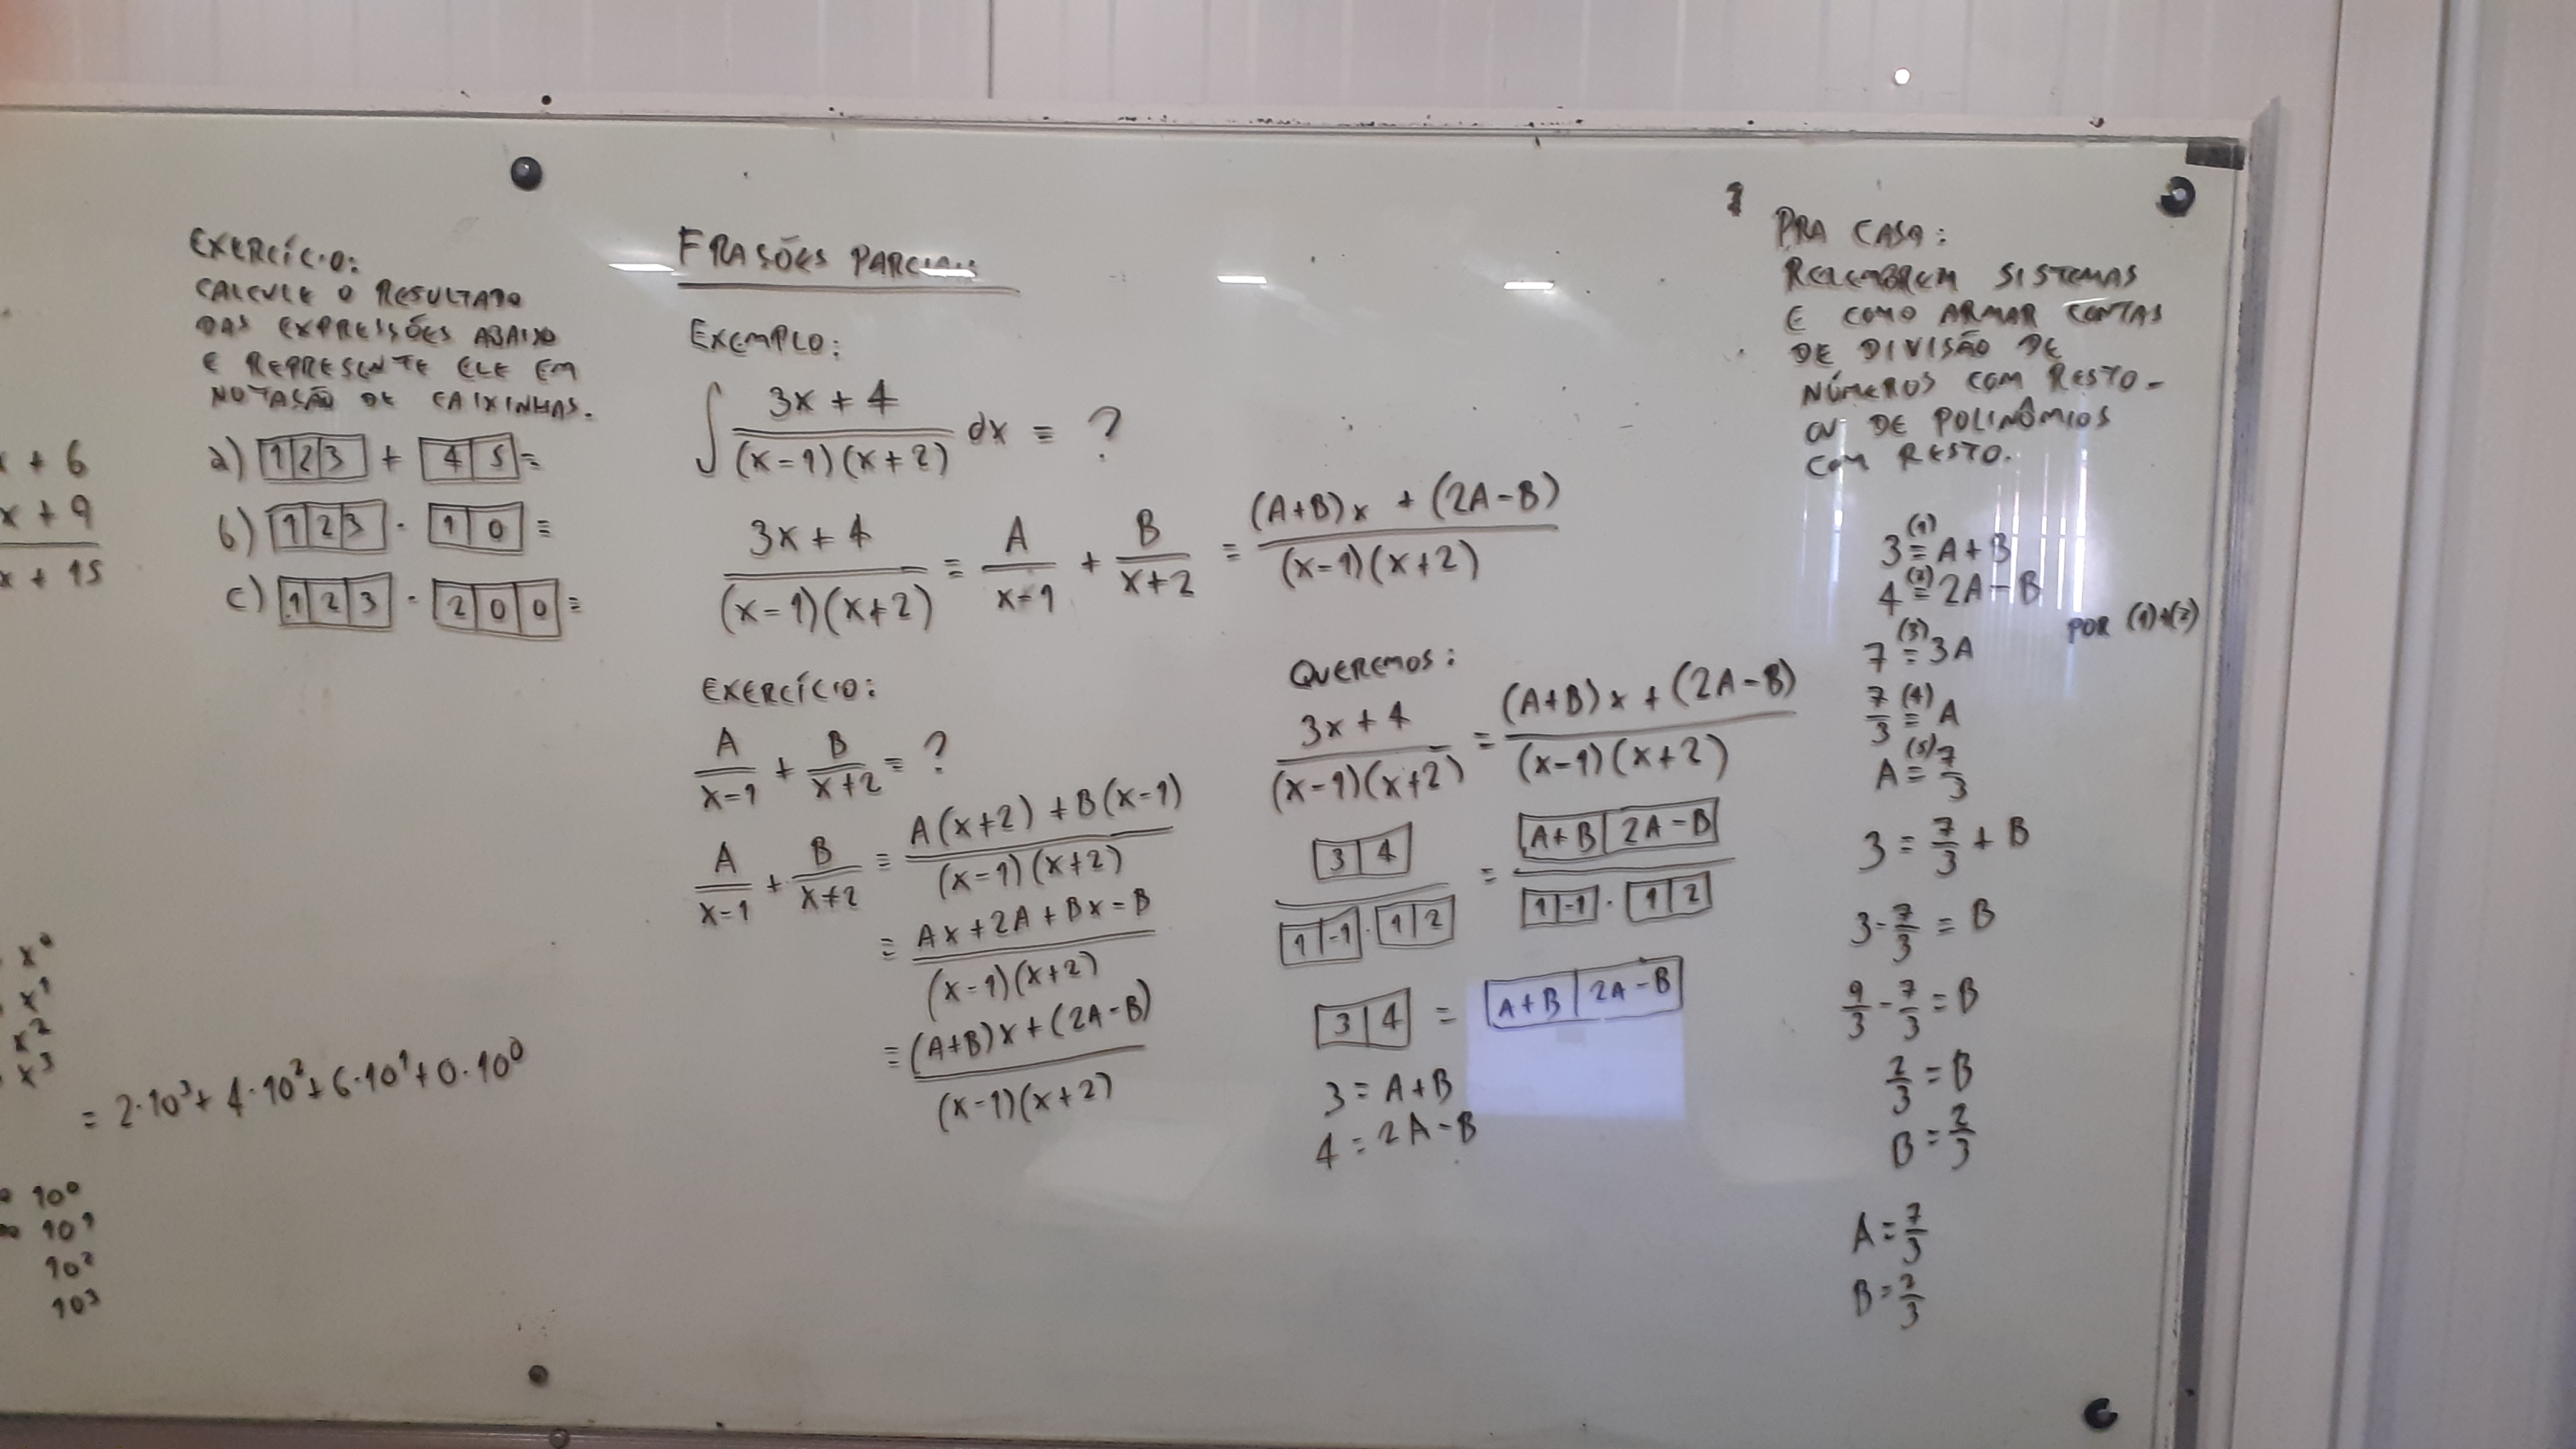 x + 6
x + 9
x + 15
x⁰
x¹
x²
x³
= 2·10³ + 4·10² + 6·10¹ + 0·10⁰
10⁰
10¹
10²
10³
EXERCÍCIO:
CALCULE O RESULTADO
DAS EXPRESSÕES ABAIXO
E REPRESENTE ELE EM
NOTAÇÃO DE CAIXINHAS.
a) |1|2|3| + |4|5| =
b) |1|2|3| · |1|0| =
c) |1|2|3| · |2|0|0| =
FRAÇÕES PARCIAIS
EXEMPLO:
∫ (3x + 4)/((x-1)(x+2)) dx = ?
(3x + 4)/((x-1)(x+2)) = A/(x-1) + B/(x+2) = ((A+B)x + (2A-B))/((x-1)(x+2))
EXERCÍCIO:
A/(x-1) + B/(x+2) = ?
A/(x-1) + B/(x+2) = (A(x+2) + B(x-1))/((x-1)(x+2))
= (Ax + 2A + Bx - B)/((x-1)(x+2))
= ((A+B)x + (2A-B))/((x-1)(x+2))
QUEREMOS:
(3x + 4)/((x-1)(x+2)) = ((A+B)x + (2A-B))/((x-1)(x+2))
|3|4| / (|1|-1| · |1|2|) = |A+B|2A-B| / (|1|-1| · |1|2|)
|3|4| = |A+B|2A-B|
3 = A+B
4 = 2A-B
PRA CASA:
RELEMBREM SISTEMAS
E COMO ARMAR CONTAS
DE DIVISÃO DE
NÚMEROS COM RESTO -
OU DE POLINÔMIOS
COM RESTO.
3 =(1) A+B
4 =(2) 2A-B
7 =(3) 3A POR (1)+(2)
7/3 =(4) A
A =(5) 7/3
3 = 7/3 + B
3 - 7/3 = B
9/3 - 7/3 = B
2/3 = B
B = 2/3
A = 7/3
B = 2/3